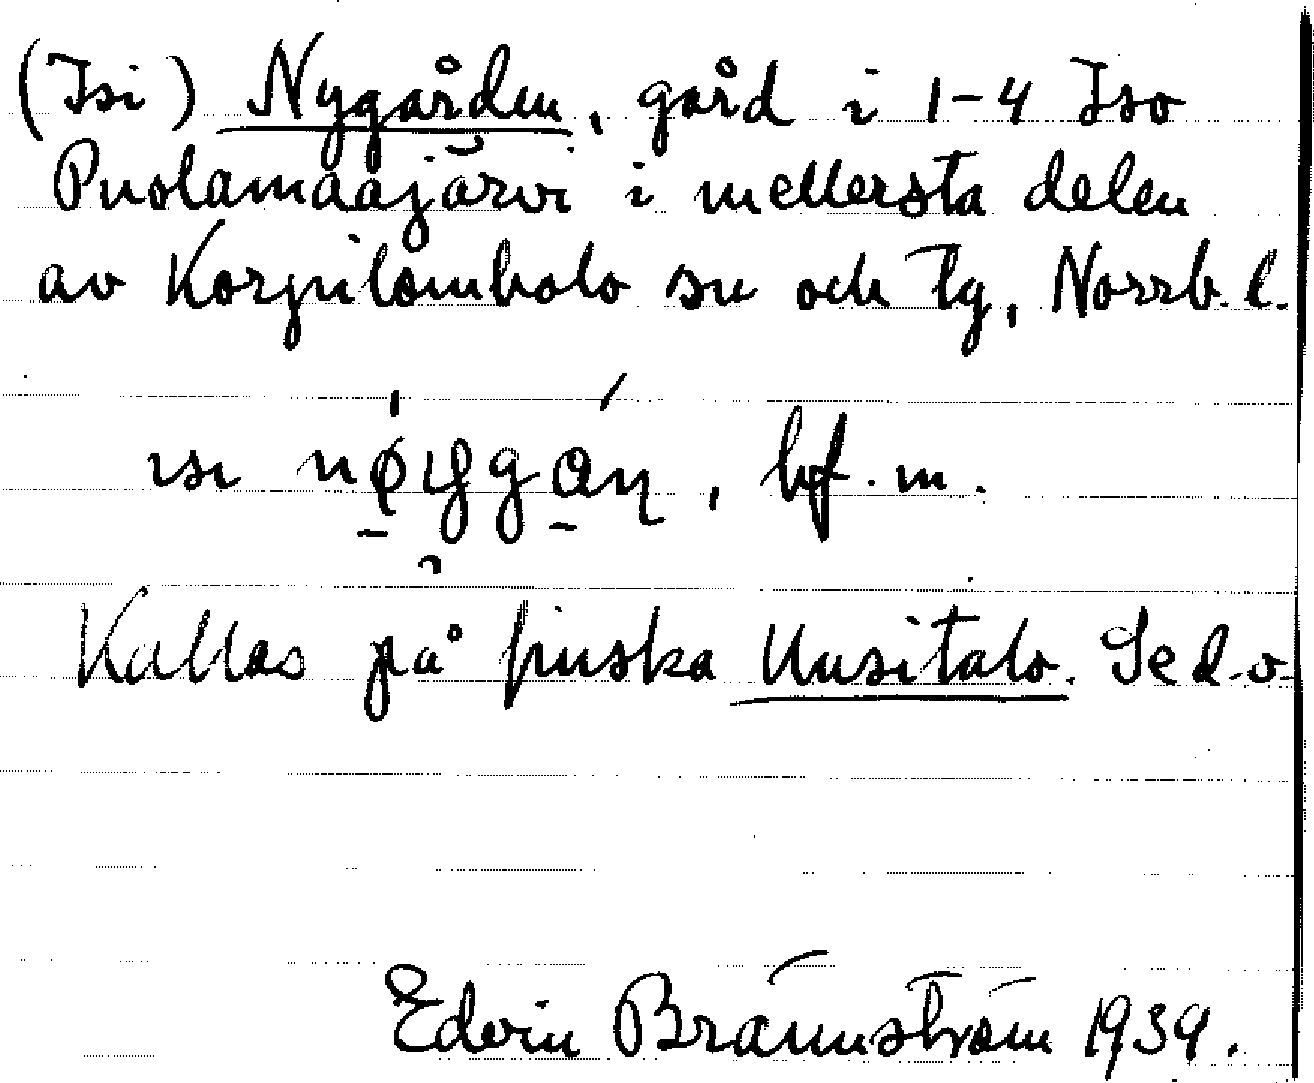 (Isi) Nygården, gård i 1-4 Iso
Puolamaajärvi i mellersta delen
av Korpilombolo sn och tg, Norrb. l.
isi, bf. m.
Kallas på finska Uusitalo. Se d.o.
Edvin Brännström 1939.